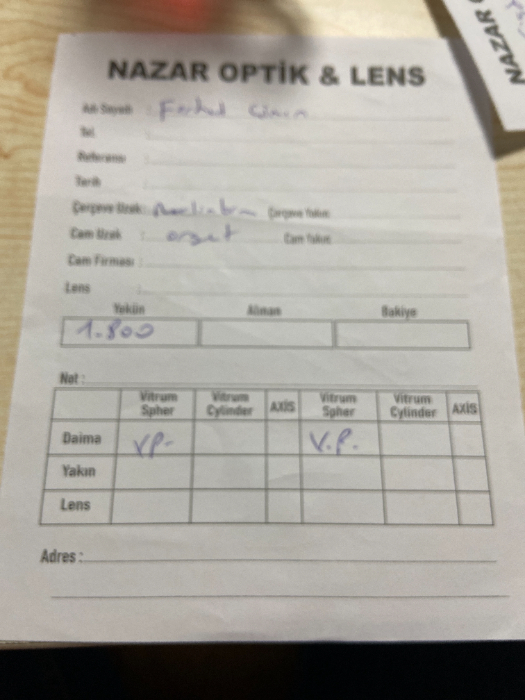 NAZAR OPTİK & LENS
Adı Soyadı :
Tel.
Referansı
Tarih
Çerçeve Uzak: Çerçeve Yakın:
Cam Uzak : Cam Yakın:
Cam Firması :
Lens
Yekün Alınan Bakiye
1.800
Not :
Vitrum Spher Vitrum Cylinder AXİS Vitrum Spher Vitrum Cylinder AXİS
Daima VP- V.P.
Yakın
Lens
Adres :
NAZAR